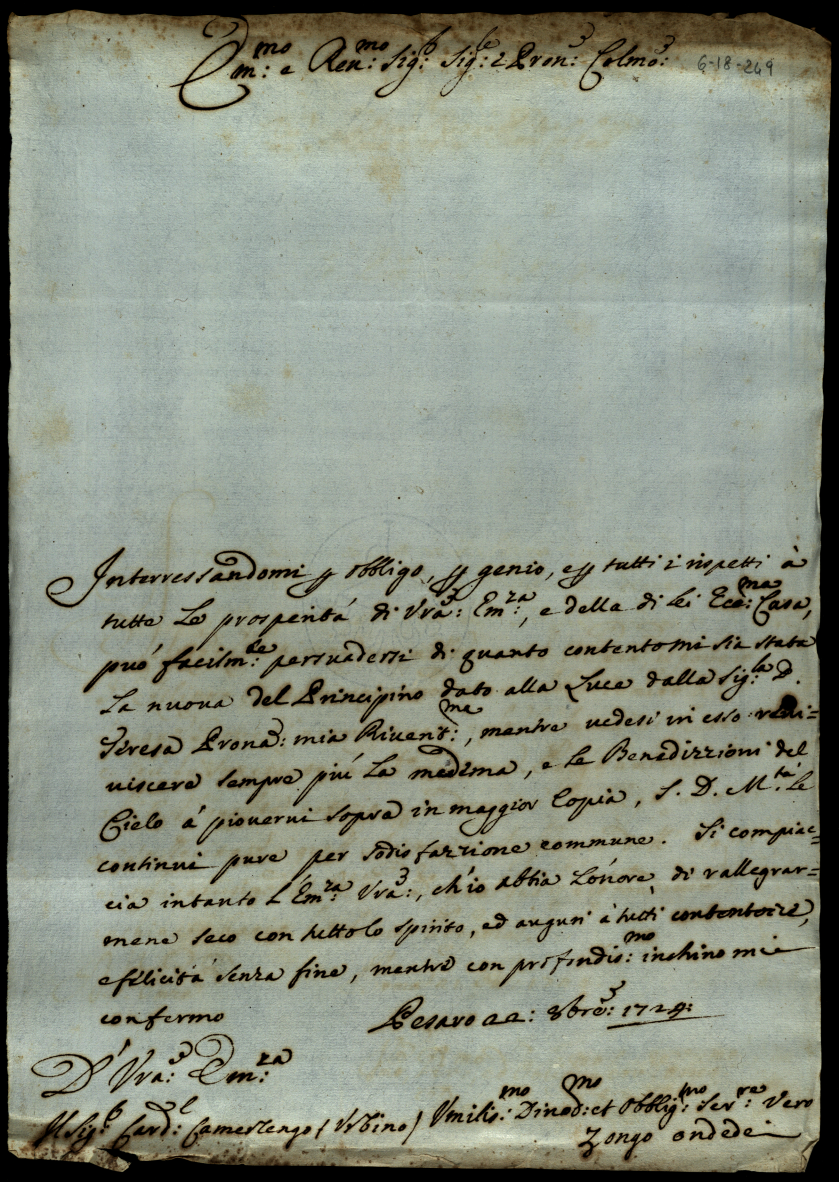 Em:mo e Reu:mo Sig:r Sig:re e Pron: Colmo:
6-18-249
Interressandomi p obbligo, p genio, e p tutti i rispetti à
tutte le prosperità di Vra: Em:za, e della di lei Ecc:ma Casa,
può facilm:te persuadersi di quanto contento mi sia stata
la nuova del Principino dato alla Luce dalla Sig:la D.
Teresa Prona: mia Riuerit:ma, mentre uedesi in esso
uiscere sempre più la medema, e le Benedizzioni del
Cielo à piouerui sopra in maggior Copia, S. D. M:tà le
continui pure per sodisfazzione commune. Si compiac=
cia intanto l'Em:za Vra:, ch'io abbia L'onore di rallegrar=
mene seco con tutto lo spirito, ed auguri à tutti contentezze,
e felicità senza fine, mentre con profondis:mo inchino mi
confermo
Pesaro 22: 8bre: 1724:
D' Vra: Em:za
Il Sig:r Card:l Camerlengo (Vrbino)
Vmilis:mo Diuod:mo et Obblig:mo Ser:re Vero
Zongo Ondedei